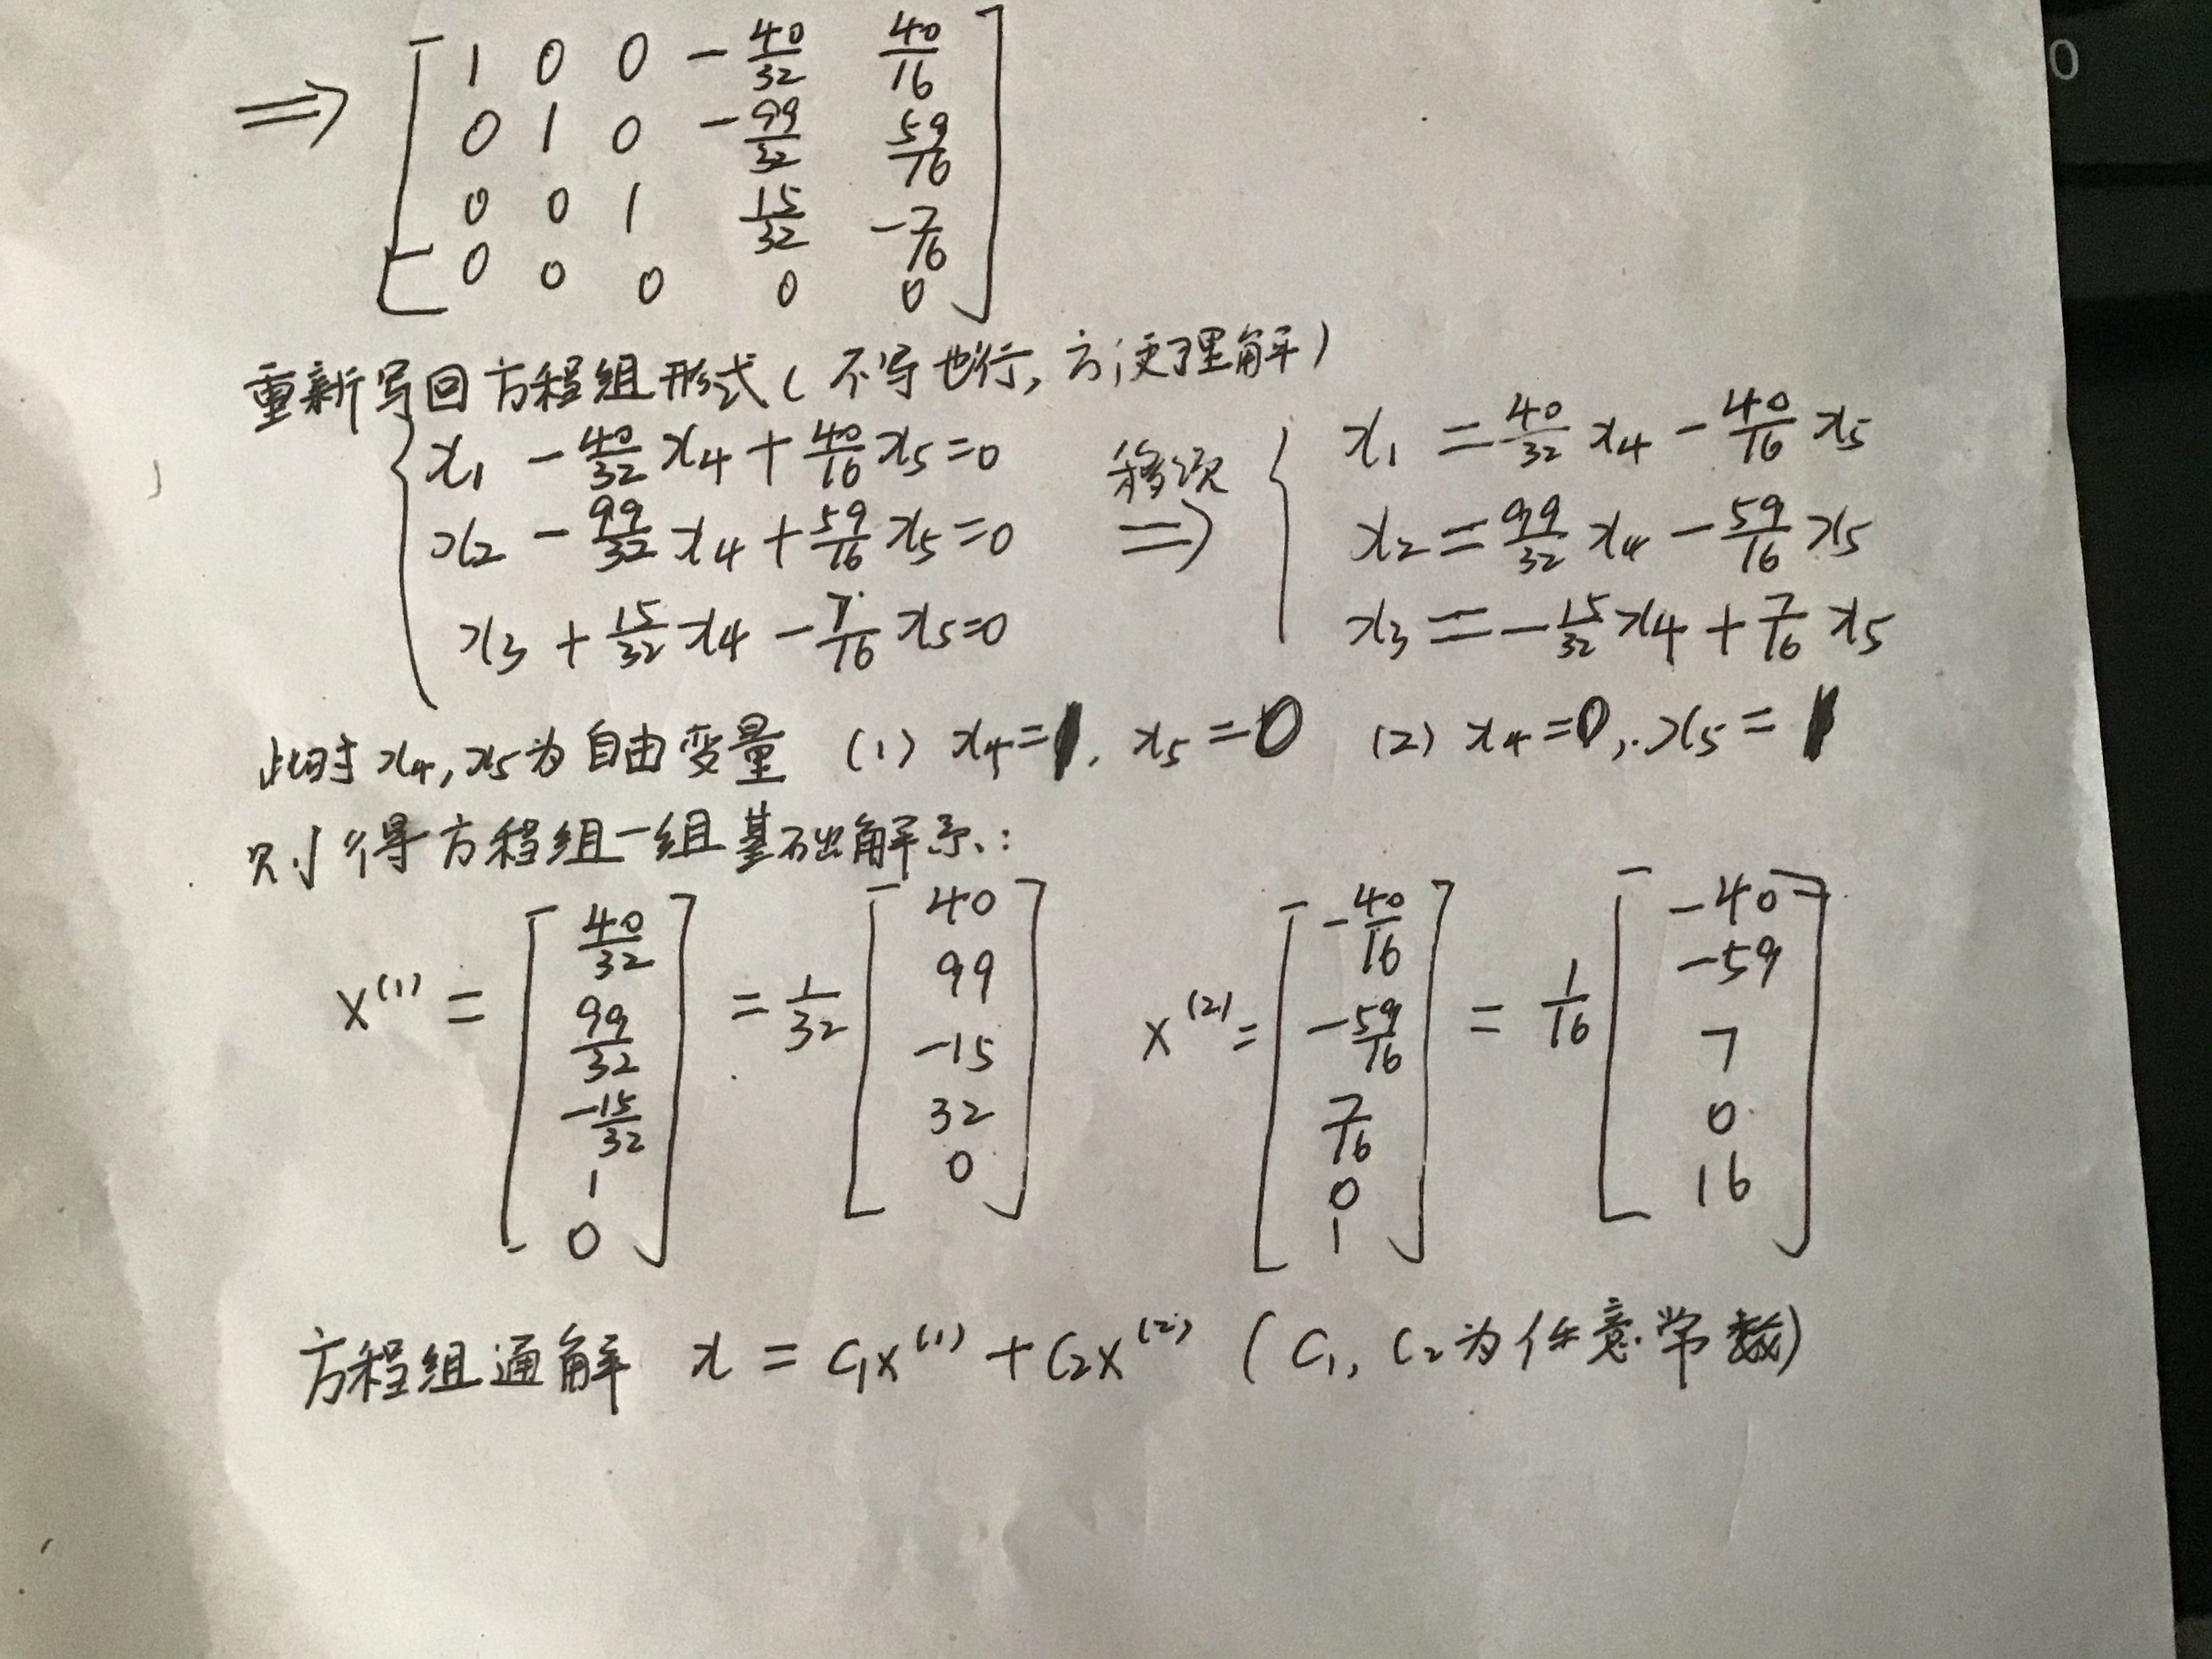 ⇒ [ 1 0 0 -40/32 40/16
0 1 0 -99/32 59/16
0 0 1 15/32 -7/16
0 0 0 0 0 ]
重新写回方程组形式(不写也行,方便理解)
{ x₁ - 40/32 x₄ + 40/16 x₅ = 0 移项 ⇒ { x₁ = 40/32 x₄ - 40/16 x₅
x₂ - 99/32 x₄ + 59/16 x₅ = 0 x₂ = 99/32 x₄ - 59/16 x₅
x₃ + 15/32 x₄ - 7/16 x₅ = 0 x₃ = -15/32 x₄ + 7/16 x₅
此时 x₄, x₅ 为自由变量 (1) x₄=1, x₅=0 (2) x₄=0, x₅=1
则得方程组一组基础解系:
x⁽¹⁾ = [ 40/32 99/32 -15/32 1 0 ] = 1/32 [ 40 99 -15 32 0 ] x⁽²⁾ = [ -40/16 -59/16 7/16 0 1 ] = 1/16 [ -40 -59 7 0 16 ]
方程组通解 x = C₁x⁽¹⁾ + C₂x⁽²⁾ (C₁, C₂为任意常数)
0